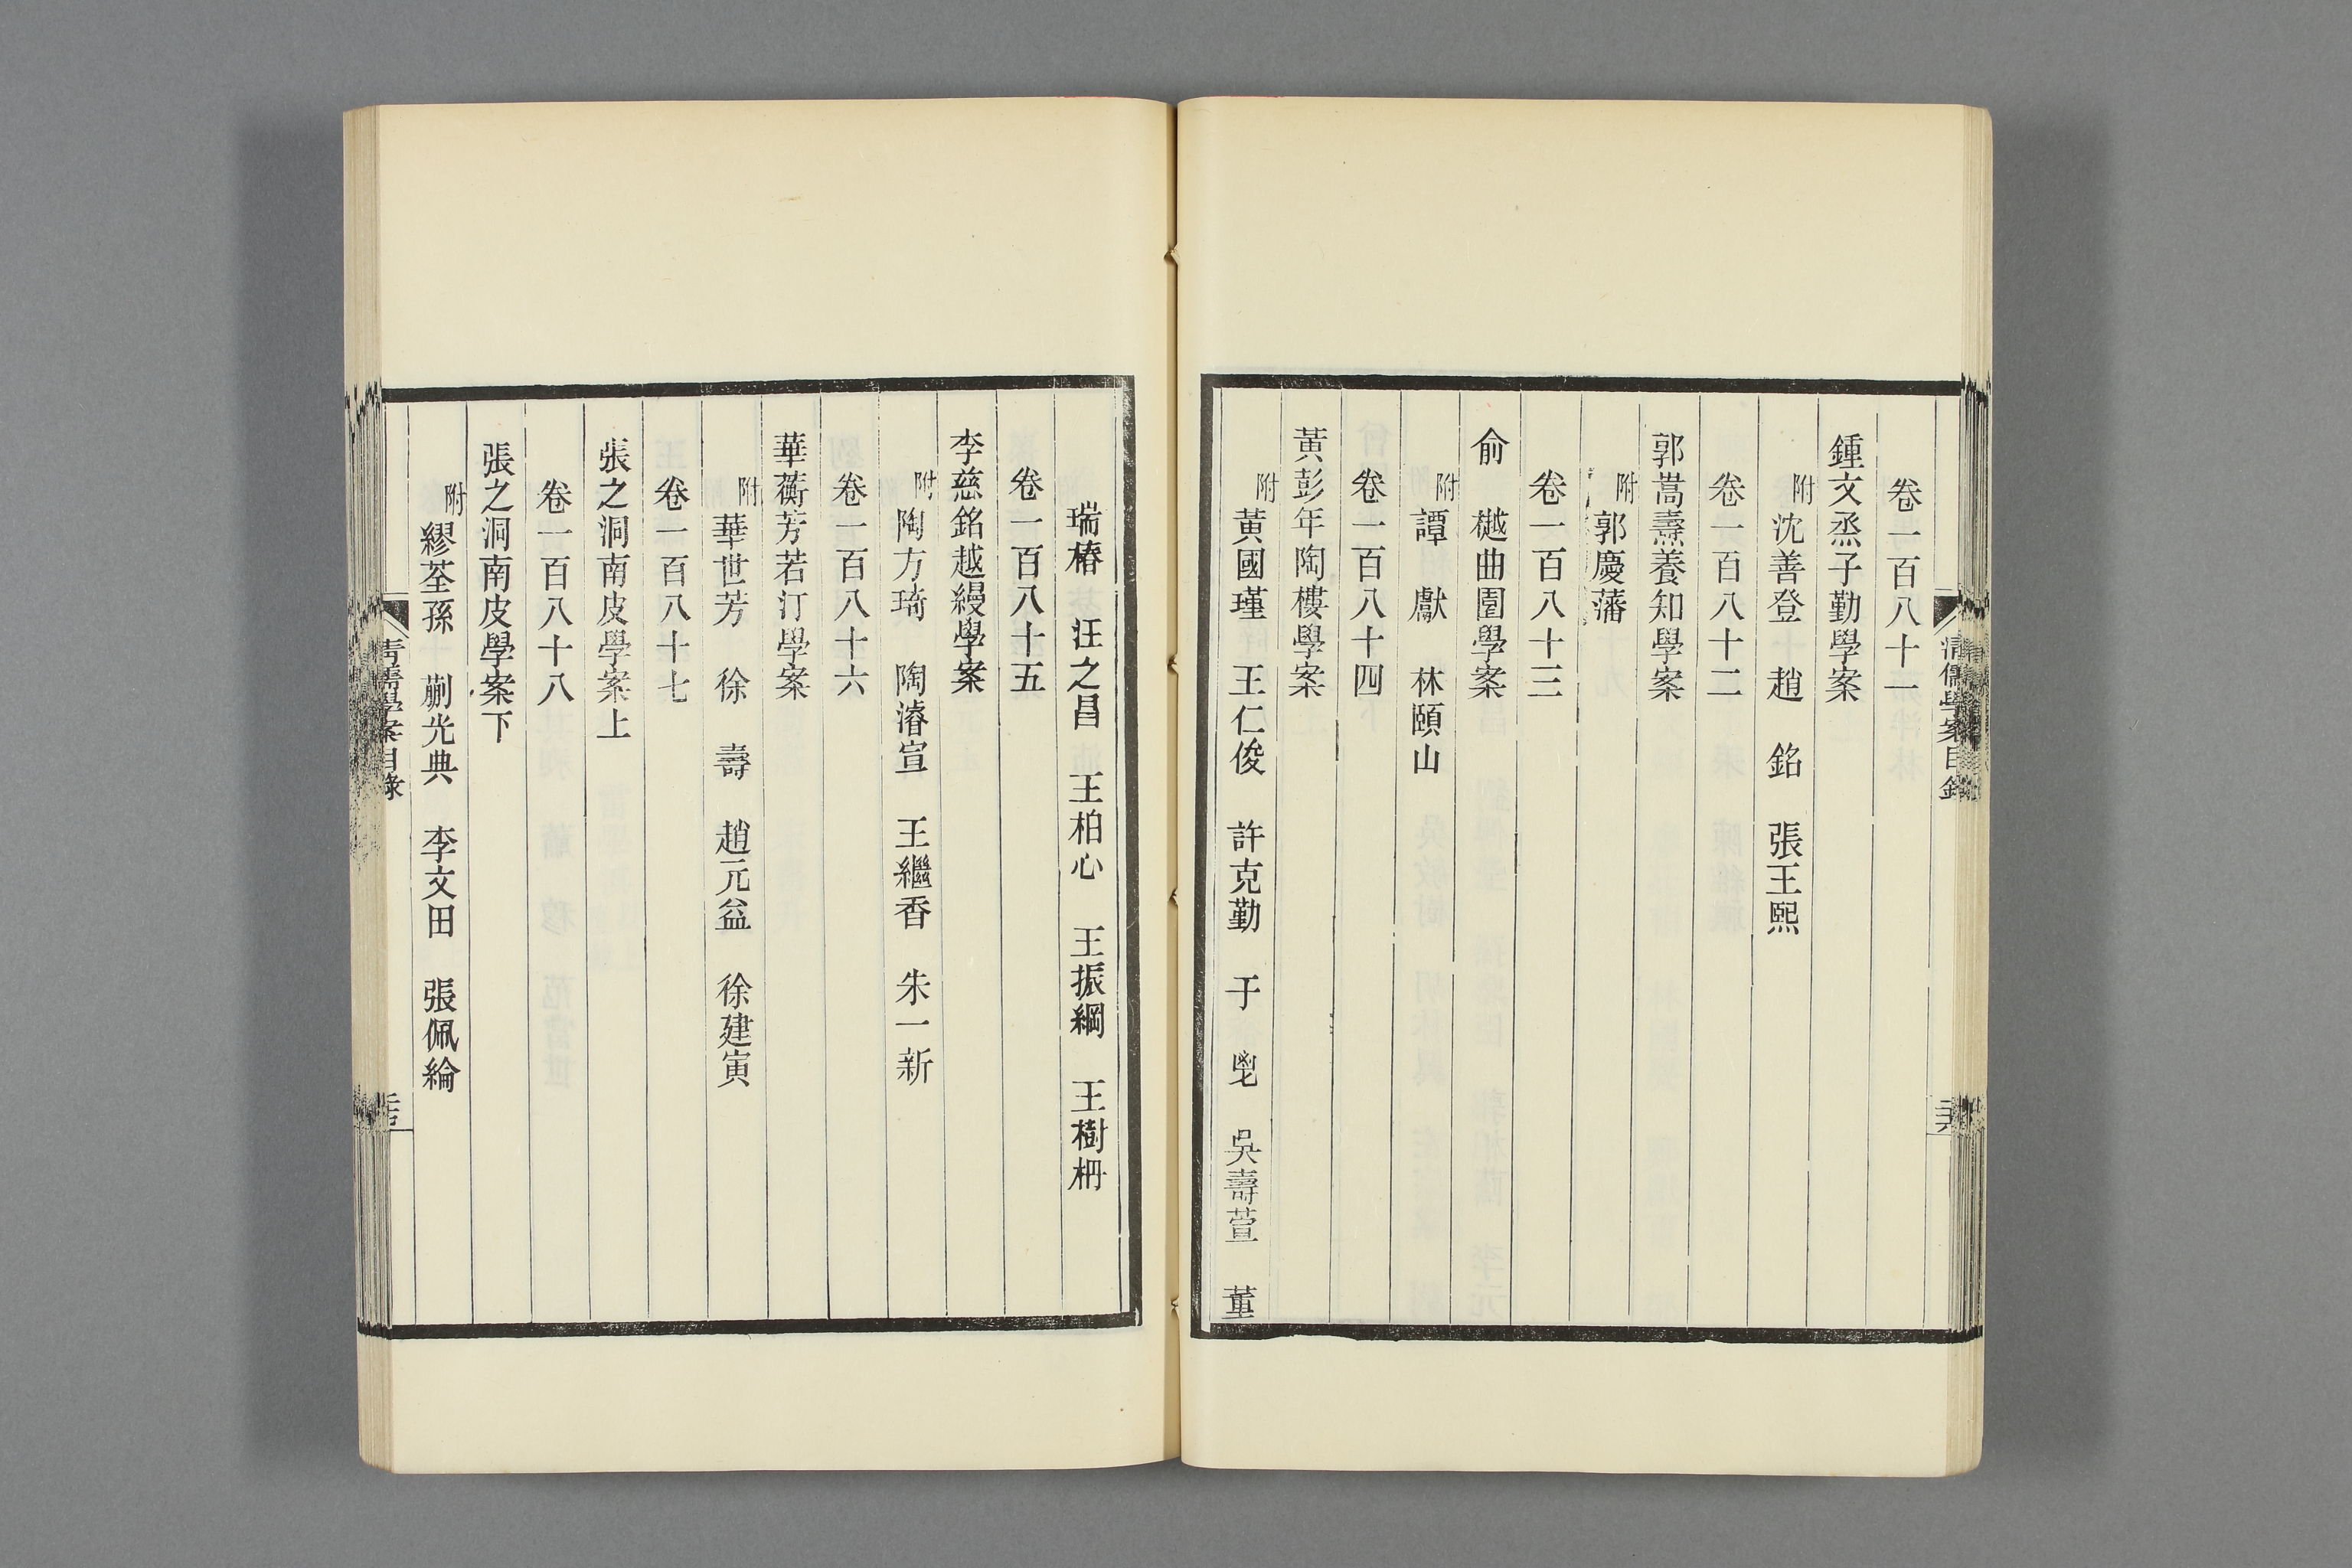 卷一百八十一
鍾文烝子勤學案
附沈善登　趙　銘　張王熙
卷一百八十二
郭嵩燾養知學案
附郭慶藩
卷一百八十三
俞　樾曲園學案
附譚　獻　林頤山
卷一百八十四
黃彭年陶樓學案
附黃國瑾　王仁俊　許克勤　于　鬯　吳壽萱　董
瑞椿　汪之昌　王柏心　王振綱　王樹枏
卷一百八十五
李慈銘越縵學案
附陶方琦　陶濬宣　王繼香　朱一新
卷一百八十六
華蘅芳若汀學案
附華世芳　徐　壽　趙元益　徐建寅
卷一百八十七
張之洞南皮學案上
卷一百八十八
張之洞南皮學案下
附繆荃孫　蒯光典　李文田　張佩綸
清儒學案目錄